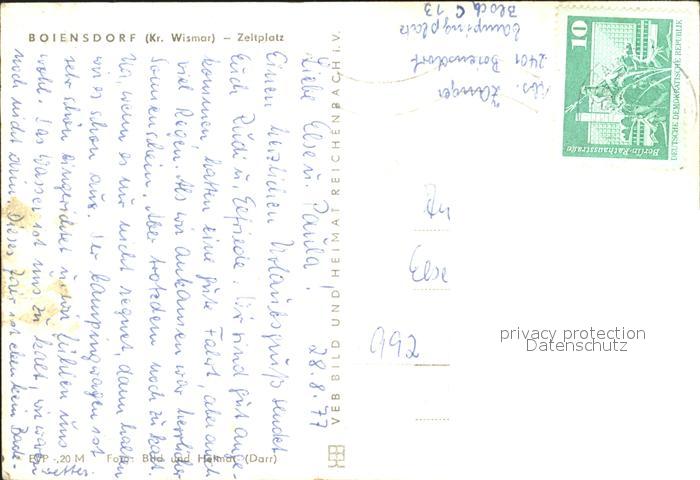 BOIENSDORF (Kr. Wismar) – Zeltplatz
Liebe Else u. Paula! 28.8.77
Einen herzlichen Urlaubsgruß sendet
Euch Rudi u. Elfriede. Wir sind gut ange-
kommen, hatten eine gute Fahrt, aber auch
viel Regen. Als wir ankamen war herrlicher
Sonnenschein. Aber trotzdem noch zu kalt.
Na, wenn es nur nicht regnet, dann halten
wir es schon aus. Der Campingwagen ist
sehr schön eingerichtet u. wir fühlen uns
wohl. Das Wasser ist uns zu kalt, wir waren
noch nicht drin. Dieses Jahr ist eben kein Bade-
wetter.
EVP -,20 M Foto: Bild und Heimat (Darr)
VEB BILD UND HEIMAT REICHENBACH i. V.
Abs. Zänger
2401 Boiensdorf
Campingplatz
Block C 13
10
DEUTSCHE DEMOKRATISCHE REPUBLIK
Berlin-Rathausstraße
An
992
privacy protection
Datenschutz